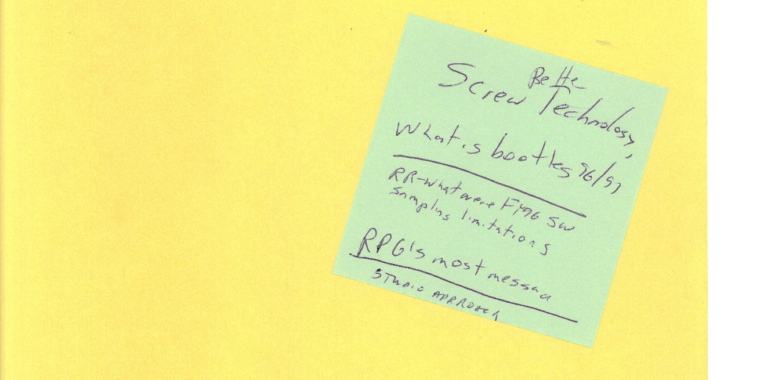 Be the
Screw Technology,
What is bootleg 96/97
RR-What were FY96 SW
sampling limitations
RPG's most
STUDIO APPROACH